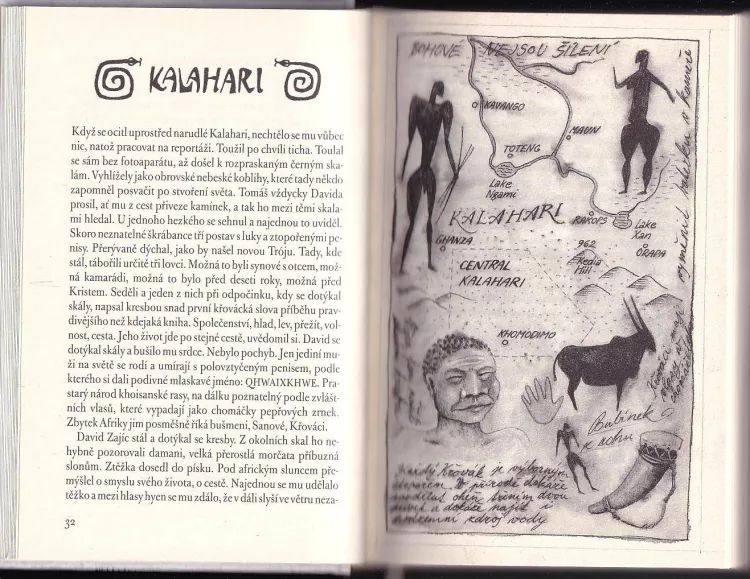 KALAHARI
Když se ocitl uprostřed narudlé Kalahari, nechtělo se mu vůbec
nic, natož pracovat na reportáži. Toužil po chvíli ticha. Toulal
se sám bez fotoaparátu, až došel k rozpraskaným černým ska-
lám. Vyhlížely jako obrovské nebeské koblihy, které tady někdo
zapomněl posvačit po stvoření světa. Tomáš vždycky Davida
prosil, ať mu z cest přiveze kamínek, a tak ho mezi těmi skala-
mi hledal. U jednoho hezkého se sehnul a najednou to uviděl.
Skoro neznatelné škrábance tří postav s luky a ztopořenými pe-
nisy. Přerývaně dýchal, jako by našel novou Tróju. Tady, kde
stál, tábořili určitě tři lovci. Možná to byli synové s otcem, mož-
ná kamarádi, možná to bylo před deseti roky, možná před
Kristem. Seděli a jeden z nich při odpočinku, kdy se dotýkal
skály, napsal kresbou snad první křovácká slova příběhu prav-
divějšího než kdejaká kniha. Společenství, hlad, lev, přežít, vol-
nost, cesta. Jeho život jde po stejné cestě, uvědomil si. David se
dotýkal skály a bušilo mu srdce. Nebylo pochyb. Jen jediní mu-
ži na světě se rodí a umírají s polovztyčeným penisem, podle
kterého si dali podivné mlaskavé jméno: QHWAIXKHWE. Pra-
starý národ khoisanské rasy, na dálku poznatelný podle zvlášt-
ních vlasů, které vypadají jako chomáčky pepřových zrnek.
Zbytek Afriky jim posměšně říká bušmeni, Sanové, Křováci.
David Zajíc stál a dotýkal se kresby. Z okolních skal ho ne-
hybně pozorovali damani, velká přerostlá morčata příbuzná
slonům. Ztěžka dosedl do písku. Pod africkým sluncem pře-
mýšlel o smyslu svého života, o cestě. Najednou se mu udělalo
těžko a mezi hlasy hyen se mu zdálo, že v dáli slyší ve větru neza-
32
BOHOVÉ NEJSOU ŠÍLENÍ
KAVANGO
MAUN
TOTENG
Lake
Ngami
KALAHARI
RAKOPS
Lake
Xan
ORAPA
GHANZA
962
Ekedia
Hill
CENTRAL
KALAHARI
KHOMODIMO
Bubínek
z rohu
Každý Křovák je výborným
lovcem. V přírodě dokáže
rozdělat oheň třením dvou
dřívek a dokáže najít i
podzemní zdroj vody